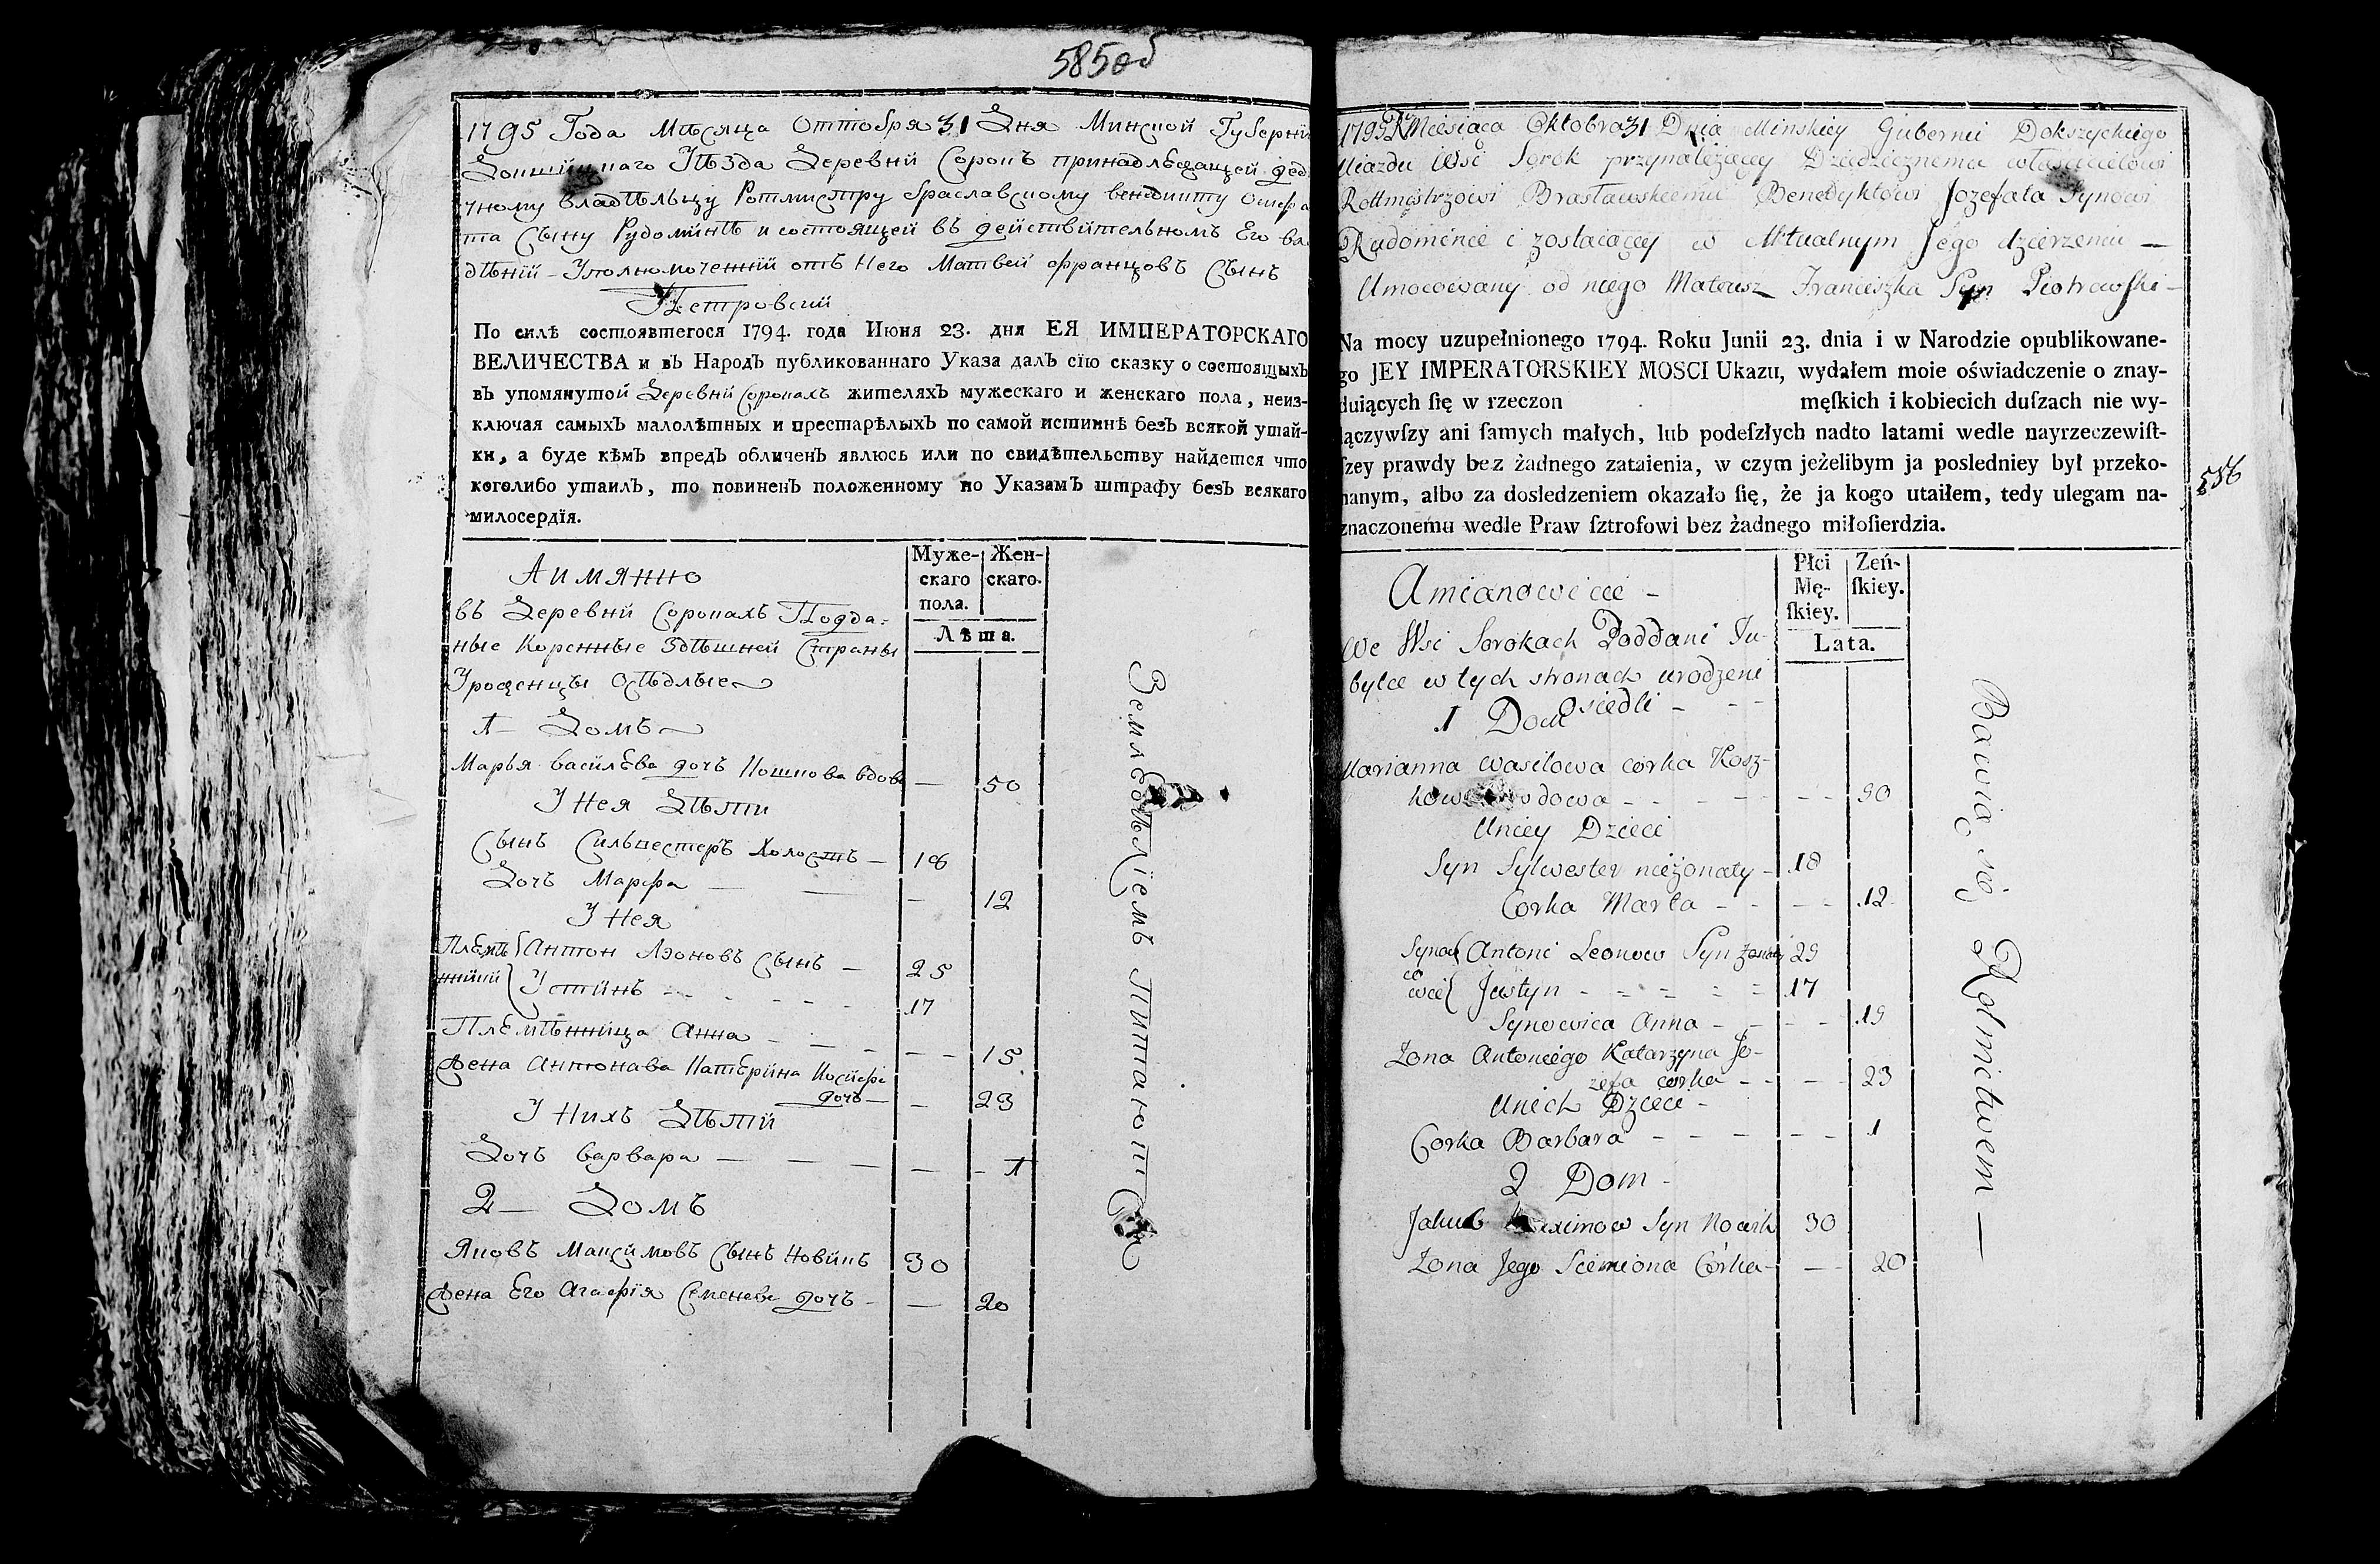 585об
1795 Года Мѣсяца Октобря 31 Дня Минской Губерніи
Докшицкаго Уѣзда Деревни Сорокъ принадлежащей дед
чному владѣльцу Ротмистру браславскому бенедикту Осифа
та Сыну Рудоминѣ и состоящей въ действительномъ Его вла
дѣніи – Уполномоченній отъ Него Матвей францовъ Сынъ
Петровскій
По силѣ состоявшегося 1794. года Июня 23. дня ЕЯ ИМПЕРАТОРСКАГО
ВЕЛИЧЕСТВА и въ Народъ публикованнаго Указа далъ сїю сказку о состоящыхъ
въ упомянутой Деревни Сорокахъ жителяхъ мужескаго и женскаго пола, неиз-
ключая самыхъ малолѣтныхъ и престарѣлыхъ по самой истиннѣ безъ всякой утай-
ки, а буде кѣмъ впредъ обличенъ явлюсь или по свидѣтельству найдется что
коголибо утаилъ, то повиненъ положенному по Указамъ штрафу безъ всякаго
милосердїя.
Муже- Жен-
скаго скаго.
пола.
Лѣта.
Аимянно
въ Деревни Сорокахъ Подда:
ные Коренные Здѣшней Страны
Уроженцы Осѣдлые
1 – Домъ
Марья василЕва дочь Кошкова вдова — 50
У Нея Дѣти
Сынъ Сильвестеръ Холостъ — 18
Дочь Марфа — — 12
У Нея
Племѣ Антон Лэоновъ Сынъ — 25
нники Устинъ - - - - - - 17
Племѣнница Анна - - - - - 15
Жена Антонава КатЕрина Иосифа
дочь — — 23
У Нихъ Дѣти
Дочь варвара — — — — - 1
2 — Домъ
Яковъ Максимовъ Сынъ Новикъ 30
Жена Его Агафія Семенава дочь - — 20
Земледѣліемъ Питаютса
1795 R Miesiąca Oktobra 31 Dnia Minskiey Gubernii Dokszyckiego
Uiazdu Wsi Sorok przynależącey Dziedzicznemu własicielowi
Rottmistrzowi Brasławskiemu Benedyktowi Jozefata Synowi
Rudominie i zostaiącey w Aktualnym Jego dzierzeniu —
Umocowany od niego Mateusz Franciszka Syn Piotrowski -
Na mocy uzupełnionego 1794. Roku Junii 23. dnia i w Narodzie opublikowane-
go JEY IMPERATORSKIEY MOSCI Ukazu, wydałem moie oświadczenie o znay-
duiących ſię w rzeczon męſkich i kobiecich duſzach nie wy-
łączywſzy ani ſamych małych, lub podeſzłych nadto latami wedle nayrzeczewiſt-
ſzey prawdy bez żadnego zataienia, w czym jeżelibym ja posledniey był przeko-
nanym, albo za dosledzeniem okazało ſię, że ja kogo utaiłem, tedy ulegam na-
znaczonemu wedle Praw ſztrofowi bez żadnego miłoſierdzia.
556
Płci Zeń-
Mę- ſkiey.
ſkiey.
Lata.
Amianowicie -
We Wsi Sorokach Poddani Tu-
bylce w tych stronach urodzeni
Osiedli - - -
1 Dom
Marianna Wasilowa corka Kosz-
kowa wdowa - - - - - - - 50
Uniey Dzieci
Syn Sylwester nieżonaty - 18
Corka Marta - - - - 12
Synow Antoni Leonow Syn żonaty 25
co
wie Justyn - - - - - 17
Synowica Anna - - - - 15
Zona Antoniego Katarzyna Jo-
zefa corka - - - - 23
Unich Dzieci -
Corka Barbara - - - - - 1
2 Dom -
Jakub Maximow Syn Nowik 30
Zona Jego Siemiona Córka - - - 20
Bawią się Rolnictwem —